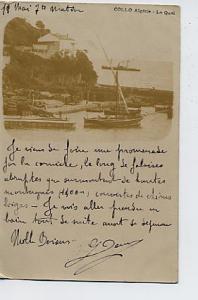 19 Mai 7h matin
COLLO Algérie - Le Quai
Je viens de faire une promenade
sur la corniche, le long de falaises
abruptes que surmontent de hautes
montagnes (1600m) couvertes de chênes
lièges - Je vais aller prendre un
bain tout de suite avant de déjeuner